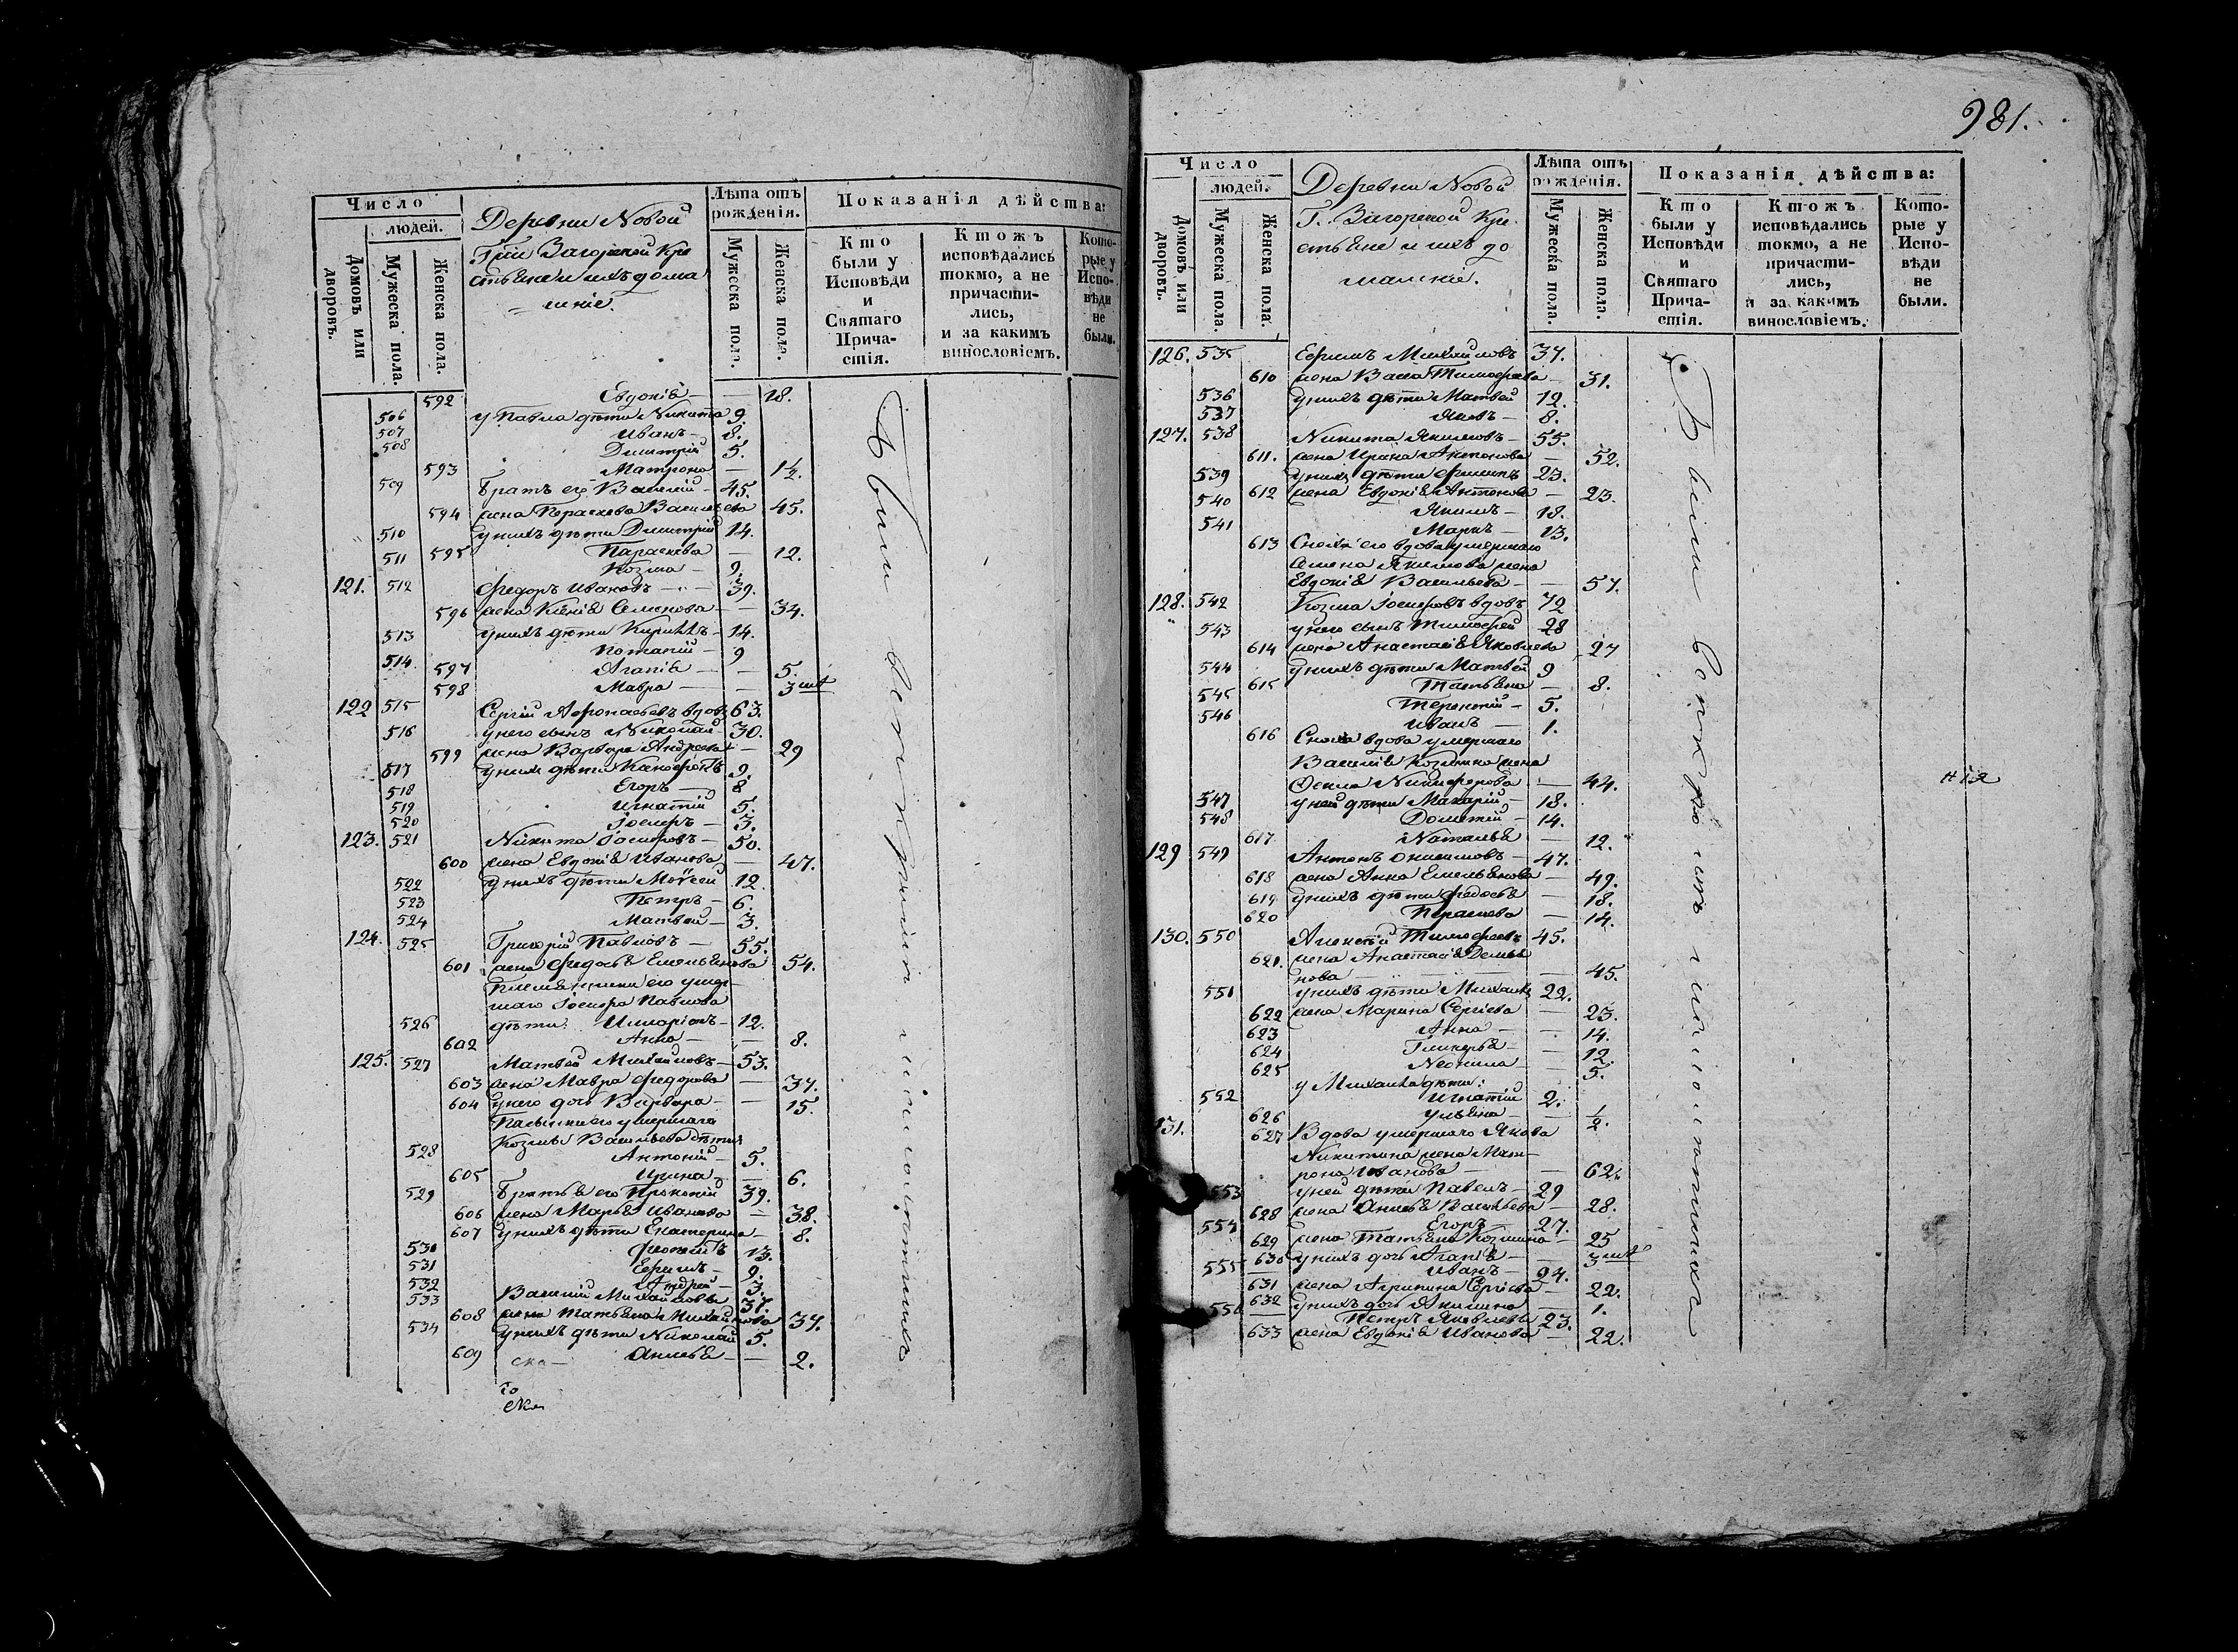 Число
людей.
Домовъ или дворовъ.
Мужеска пола.
Женска пола.
Деревни Новой
Гжи Загорской Кре
стьяне и ихъ дома
шніе.
Лѣта отъ рожденія.
Мужеска пола.
Женска пола.
Показанія дѣйства:
Кто были у Исповѣди и Святаго Причастія.
Ктожъ исповѣдались токмо, а не причастились, и за какимъ винословіемъ.
Которые у Исповѣди не были.
592 Евдокія — 18.
506 у Павла дѣти Никита 9.
507 Иванъ — 8.
508 Димитрій 5.
593 Матрона — 1½.
509 Братъ его Василій — 45.
594 жена Параскева Васильева 45.
510 у нихъ дѣти Димитрій 14.
595 Параскева — 12.
511 Козма — 9.
121. 512 Федоръ Ивановъ — 39.
596 жена Ксенія Семенова — 34.
513 у нихъ дѣти Кириллъ — 14.
514 Потапій — 9
597 Агапія — 5.
598 Мавра — 3
122 515 Сергій Афонасьевъ вдовъ 63.
516 у него сынъ Николай 30.
599 жена Варвара Андреева — 29
517 у нихъ дѣти Ксенофонтъ 9.
518 Егоръ — 8
519 Игнатій 5.
520 Іосифъ — 3.
123. 521 Никита Іосифовъ — 50.
600 жена Евдокія Иванова — 47.
522 у нихъ дѣти Моѵсей 12.
523 Петръ — 6.
524 Матвей — 3.
124. 525 Григорій Павловъ — 55.
601 жена Федосья Емельянова 54.
Племянники его умер-
шаго Іосифа Павлова
526 дѣти: Иларіонъ — 12.
602 Анна — 8.
125. 527 Матвей Михайловъ — 53.
603 жена Мавра Федорова — 37.
604 у него дочь Варвара — 15.
умершаго
Козмы Васильева дѣти
528 Антоній — 5.
605 Ирина — 6.
529 Братья его Прокопій 39.
606 жена Марья Иванова — 38.
607 у нихъ дѣти Екатерина — 8.
530 13.
531 Ефимъ — 9.
532 Андрей — 3.
533 Василій Михайловъ 37.
608 жена Татьяна Михайлова 37.
534 у нихъ дѣти Николай 5.
609 Анисья — 2.
Были
981.
Число
людей.
Домовъ или дворовъ.
Мужеска пола.
Женска пола.
Деревни Новой
Г. Загорской Кре-
стьяне и ихъ до
машніе.
Лѣта отъ рожденія.
Мужеска пола.
Женска пола.
Показанія дѣйства:
Кто были у Исповѣди и Святаго Причастія.
Ктожъ исповѣдались токмо, а не причастились, и за какимъ винословіемъ.
Которые у Исповѣди не были.
126. 535 Ефимъ Михайловъ 37.
610 жена Васса Тимофеева — 31.
536 у нихъ дѣти Матвей 12.
537 Яковъ — 8.
127. 538 Никита Якимовъ — 55.
611. жена Ирина Антонова — 52.
539 у нихъ дѣти Филипъ 23.
612 жена Евдокія Антонова — 23.
540 Якимъ — 18.
541 Маркъ — 13.
613 Сноха его вдова умершаго
Семена Якимова жена
Евдокія Васильева — 57.
128. 542 Козма Іосифовъ вдовъ 72
543 у него сынъ Тимофей 28
614 жена Анастасія Яковлева 27
544 у нихъ дѣти Матвей 9
615 Татьяна — 8.
545 Терентій — 5.
546 Иванъ — 1.
616 Сноха вдова умершаго
Василія Козмина жена
Фекла Никифорова — 44.
547 у ней дѣти Макарій — 18.
548 Дометій — 14.
617 Наталья — 12.
129 549 Антонъ Онисимовъ — 47.
618 жена Анна Емельянова — 49.
619 у нихъ дѣти Федосья — 18.
620 Параскева — 14.
130. 550 Алексѣй Тимофеевъ 45.
621. жена Анастасія Демья
нова — 45.
551 у нихъ дѣти Михаилъ 22.
622 жена Марина Сергіева — 23.
623 Анна — 14.
624 Гликерья — 12.
625 Неонила — 5.
у Михаила дѣти:
552 Игнатій 2.
626 Ульяна — ½.
131. 627 Вдова умершаго Якова
Никитина жена Мат-
рона Иванова — 62.
553 у ней дѣти Павелъ — 29
628 жена Анисья Васильева — 28.
554 Егоръ — 27.
629 жена Татьяна Козмина — 25
630 у нихъ дочь Агапія — 3
555 Иванъ — 24.
631 жена Агрипина Сергіева — 22.
632 у нихъ дочь Акилина — 1.
556 Петръ Яковлевъ 23.
633 жена Евдокія Иванова — 22.
Были
нія